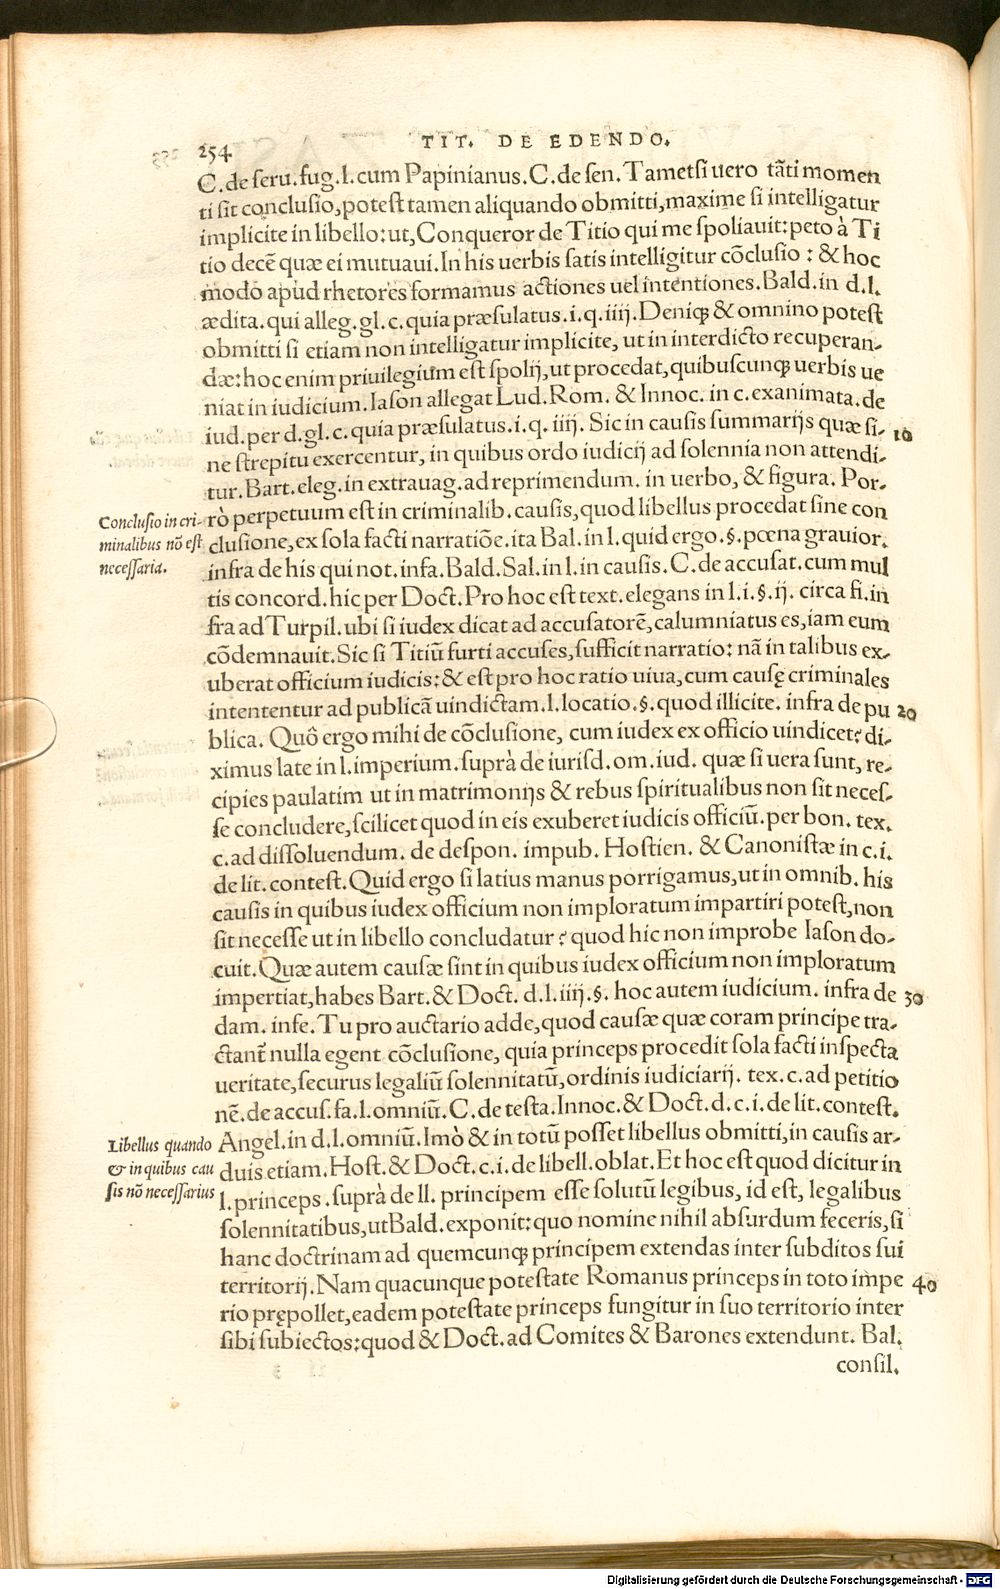 254 TIT. DE EDENDO.
C. de seru. fug. l. cum Papinianus. C. de sen. Tametsi uero tãti momen
ti sit conclusio, potest tamen aliquando obmitti, maxime si intelligatur
implicite in libello: ut, Conqueror de Titio qui me spoliauit: peto à Ti
tio decẽ quæ ei mutuaui. In his uerbis satis intelligitur cõclusio: & hoc
modo apud rhetores formamus actiones uel intentiones. Bald. in d. l.
ædita. qui alleg. gl. c. quia præsulatus. i. q. iiij. Deniq; & omnino potest
obmitti si etiam non intelligatur implicite, ut in interdicto recuperan-
dæ: hoc enim priuilegium est spolij, ut procedat, quibuscunq; uerbis ue
niat in iudicium. Iason allegat Lud. Rom. & Innoc. in c. exanimata. de
iud. per d. gl. c. quia præsulatus. i. q. iiij. Sic in causis summarijs quæ si- 10
ne strepitu exercentur, in quibus ordo iudicij ad solennia non attendi-
tur. Bart. eleg. in extrauag. ad reprimendum. in uerbo, & figura. Por-
Conclusio in cri-
minalibus nõ est
necessaria.
rò perpetuum est in criminalib. causis, quod libellus procedat sine con
clusione, ex sola facti narratiõe. ita Bal. in l. quid ergo. §. pœna grauior.
infra de his qui not. infa. Bald. Sal. in l. in causis. C. de accusat. cum mul
tis concord. hic per Doct. Pro hoc est text. elegans in l. i. §. ij. circa fi. in
fra ad Turpil. ubi si iudex dicat ad accusatorẽ, calumniatus es, iam eum
cõdemnauit. Sic si Titiũ furti accuses, sufficit narratio: nã in talibus ex-
uberat officium iudicis: & est pro hoc ratio uiua, cum causę criminales
intententur ad publicã uindictam. l. locatio. §. quod illicite. infra de pu 20
blica. Quô ergo mihi de cõclusione, cum iudex ex officio uindicet? di-
ximus late in l. imperium. suprà de iurisd. om. iud. quæ si uera sunt, re-
cipies paulatim ut in matrimonijs & rebus spiritualibus non sit neces-
se concludere, scilicet quod in eis exuberet iudicis officiũ. per bon. tex.
c. ad dissoluendum. de despon. impub. Hostien. & Canonistæ in c. i.
de lit. contest. Quid ergo si latius manus porrigamus, ut in omnib. his
causis in quibus iudex officium non imploratum impartiri potest, non
sit necesse ut in libello concludatur? quod hic non improbe Iason do-
cuit. Quæ autem causæ sint in quibus iudex officium non imploratum
impertiat, habes Bart. & Doct. d. l. iiij. §. hoc autem iudicium. infra de 30
dam. infe. Tu pro auctario adde, quod causæ quæ coram principe tra-
ctant~ nulla egent cõclusione, quia princeps procedit sola facti inspecta
ueritate, securus legaliũ solennitatũ, ordinis iudiciarij. tex. c. ad petitio
nẽ. de accus. fa. l. omniũ. C. de testa. Innoc. & Doct. d. c. i. de lit. contest.
Libellus quando
& in quibus cau
sis nõ necessarius
Angel. in d. l. omniũ. Imò & in totũ posset libellus obmitti, in causis ar-
duis etiam. Host. & Doct. c. i. de libell. oblat. Et hoc est quod dicitur in
l. princeps. suprà de ll. principem esse solutũ legibus, id est, legalibus
solennitatibus, ut Bald. exponit: quo nomine nihil absurdum feceris, si
hanc doctrinam ad quemcunq; principem extendas inter subditos sui
territorij. Nam quacunque potestate Romanus princeps in toto impe 40
rio prępollet, eadem potestate princeps fungitur in suo territorio inter
sibi subiectos: quod & Doct. ad Comites & Barones extendunt. Bal.
consil.
Digitalisierung gefördert durch die Deutsche Forschungsgemeinschaft - DFG